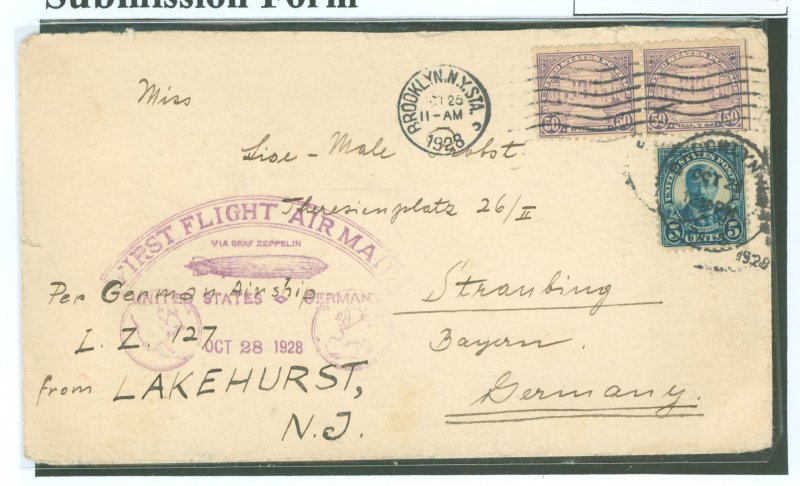 Submission Form
BROOKLYN, N.Y. STA.
OCT 25
11-AM
1928
UNITED STATES POSTAGE
50 50
50 50
UNITED STATES POSTAGE
5 CENTS 5
BROOKLYN
OCT
1928
Miss
Lise - Male
Theresienplatz 26/II
Straubing
Bayern.
Germany.
FIRST FLIGHT AIR MAIL
VIA GRAF ZEPPELIN
UNITED STATES GERMANY
OCT 28 1928
Per German Airship
L. Z. 127
from LAKEHURST,
N.J.